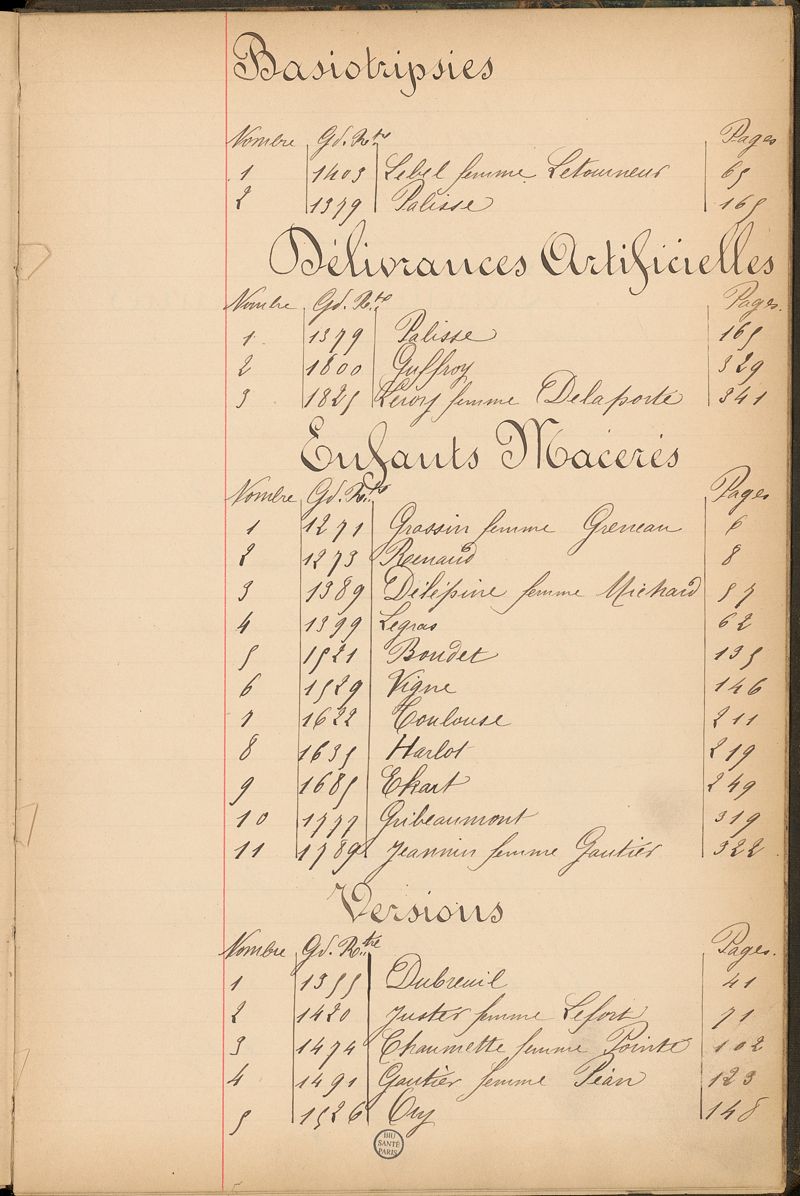 Basiotripsies
Nombre Gd. Rtre Pages
1 1403 Lebel femme Letourneur 65
2 1379 Palisse 165
Délivrances Artificielles
Nombre Gd. Rtre Pages.
1 1379 Palisse 165
2 1800 Guffroy 329
3 1825 Leroy femme Delaporte 341
Enfants Macerés
Nombre Gd. Rtre Pages
1 1271 Grossin femme Greneau 6
2 1273 Renaud 8
3 1389 Délépine femme Michard 57
4 1399 Legras 62
5 1521 Boudet 135
6 1529 Vigne 146
7 1622 Toulouse 211
8 1635 Harlot 219
9 1685 Ekart 249
10 1777 Gribeaumont 319
11 1789 Jeannin femme Gautier 322
Versions
Nombre Gd. Rtre Pages.
1 1355 Dubreuil 41
2 1420 Juster femme Lefort 71
3 1474 Chaumette femme Pointe 102
4 1491 Gautier femme Péan 123
5 1526 Ory 148
BIU
SANTÉ
PARIS